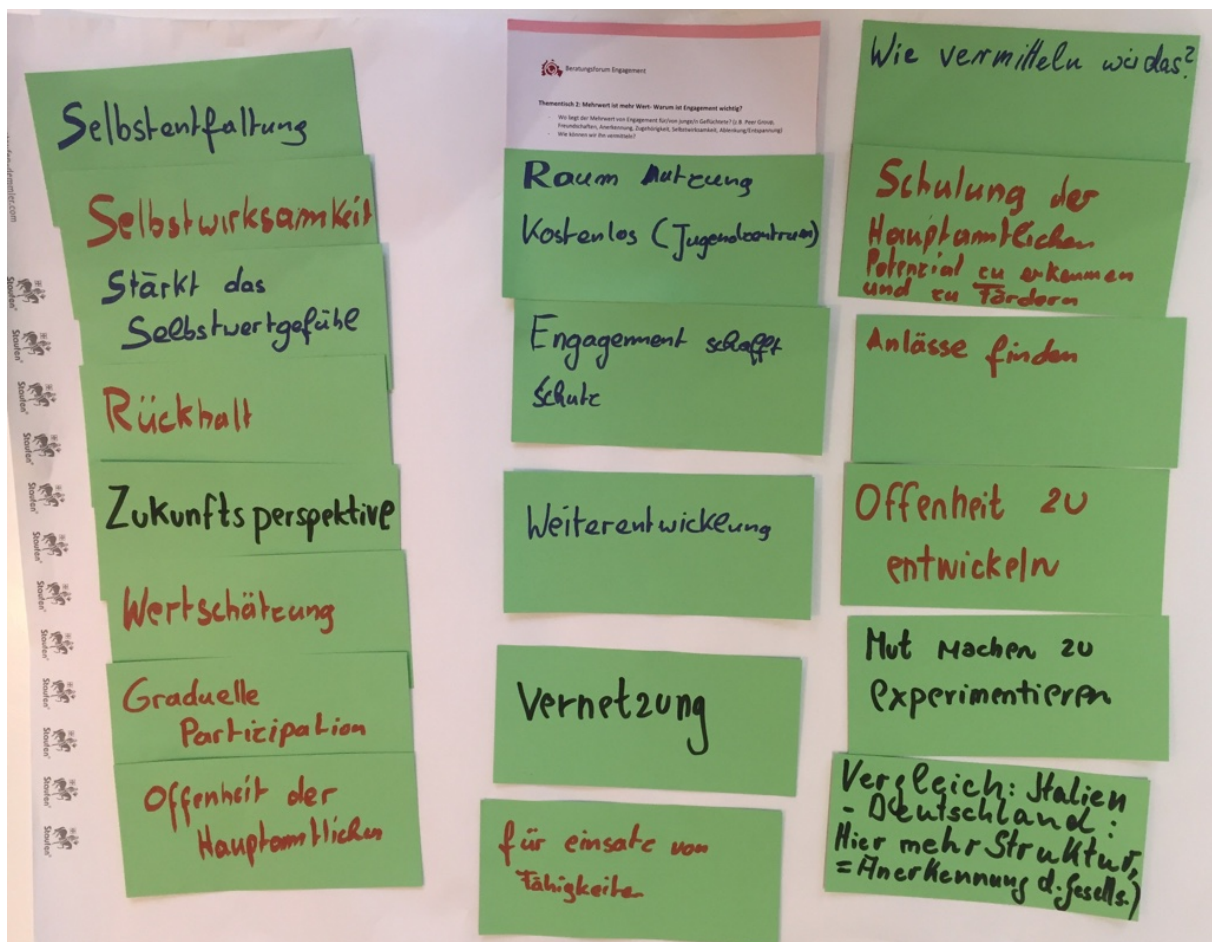 Selbstentfaltung
Selbstwirksamkeit
Stärkt das
Selbstwertgefühl
Rückhalt
Zukunftsperspektive
Wertschätzung
Graduelle
Partizipation
Offenheit der
Hauptamtlichen
Beratungsforum Engagement
Thementisch 2: Mehrwert ist mehr Wert- Warum ist Engagement wichtig?
- Wo liegt der Mehrwert von Engagement für/von junge/n Geflüchtete? (z.B. Peer Gründe,
Freundschaften, Anerkennung, Zugehörigkeit, Selbstwirksamkeit, Ablenkung/Entspannung)
- Wie können wir ihn vermitteln?
Raum Nutzung
Kostenlos (Jugendzentrum)
Engagement schafft
Schutz
Weiterentwicklung
Vernetzung
für einsatz von
Fähigkeiten
Wie vermitteln wir das?
Schulung der
Hauptamtlichen
Potenzial zu erkennen
und zu fördern
Anlässe finden
Offenheit zu
entwickeln
Mut machen zu
experimentieren
Vergleich: Italien
- Deutschland:
Hier mehr Struktur,
= Anerkennung d. Gesells.)
Staufen
Staufen
Staufen
Staufen
Staufen
Staufen
Staufen
Staufen
Staufen
Staufen
Staufen
Staufen